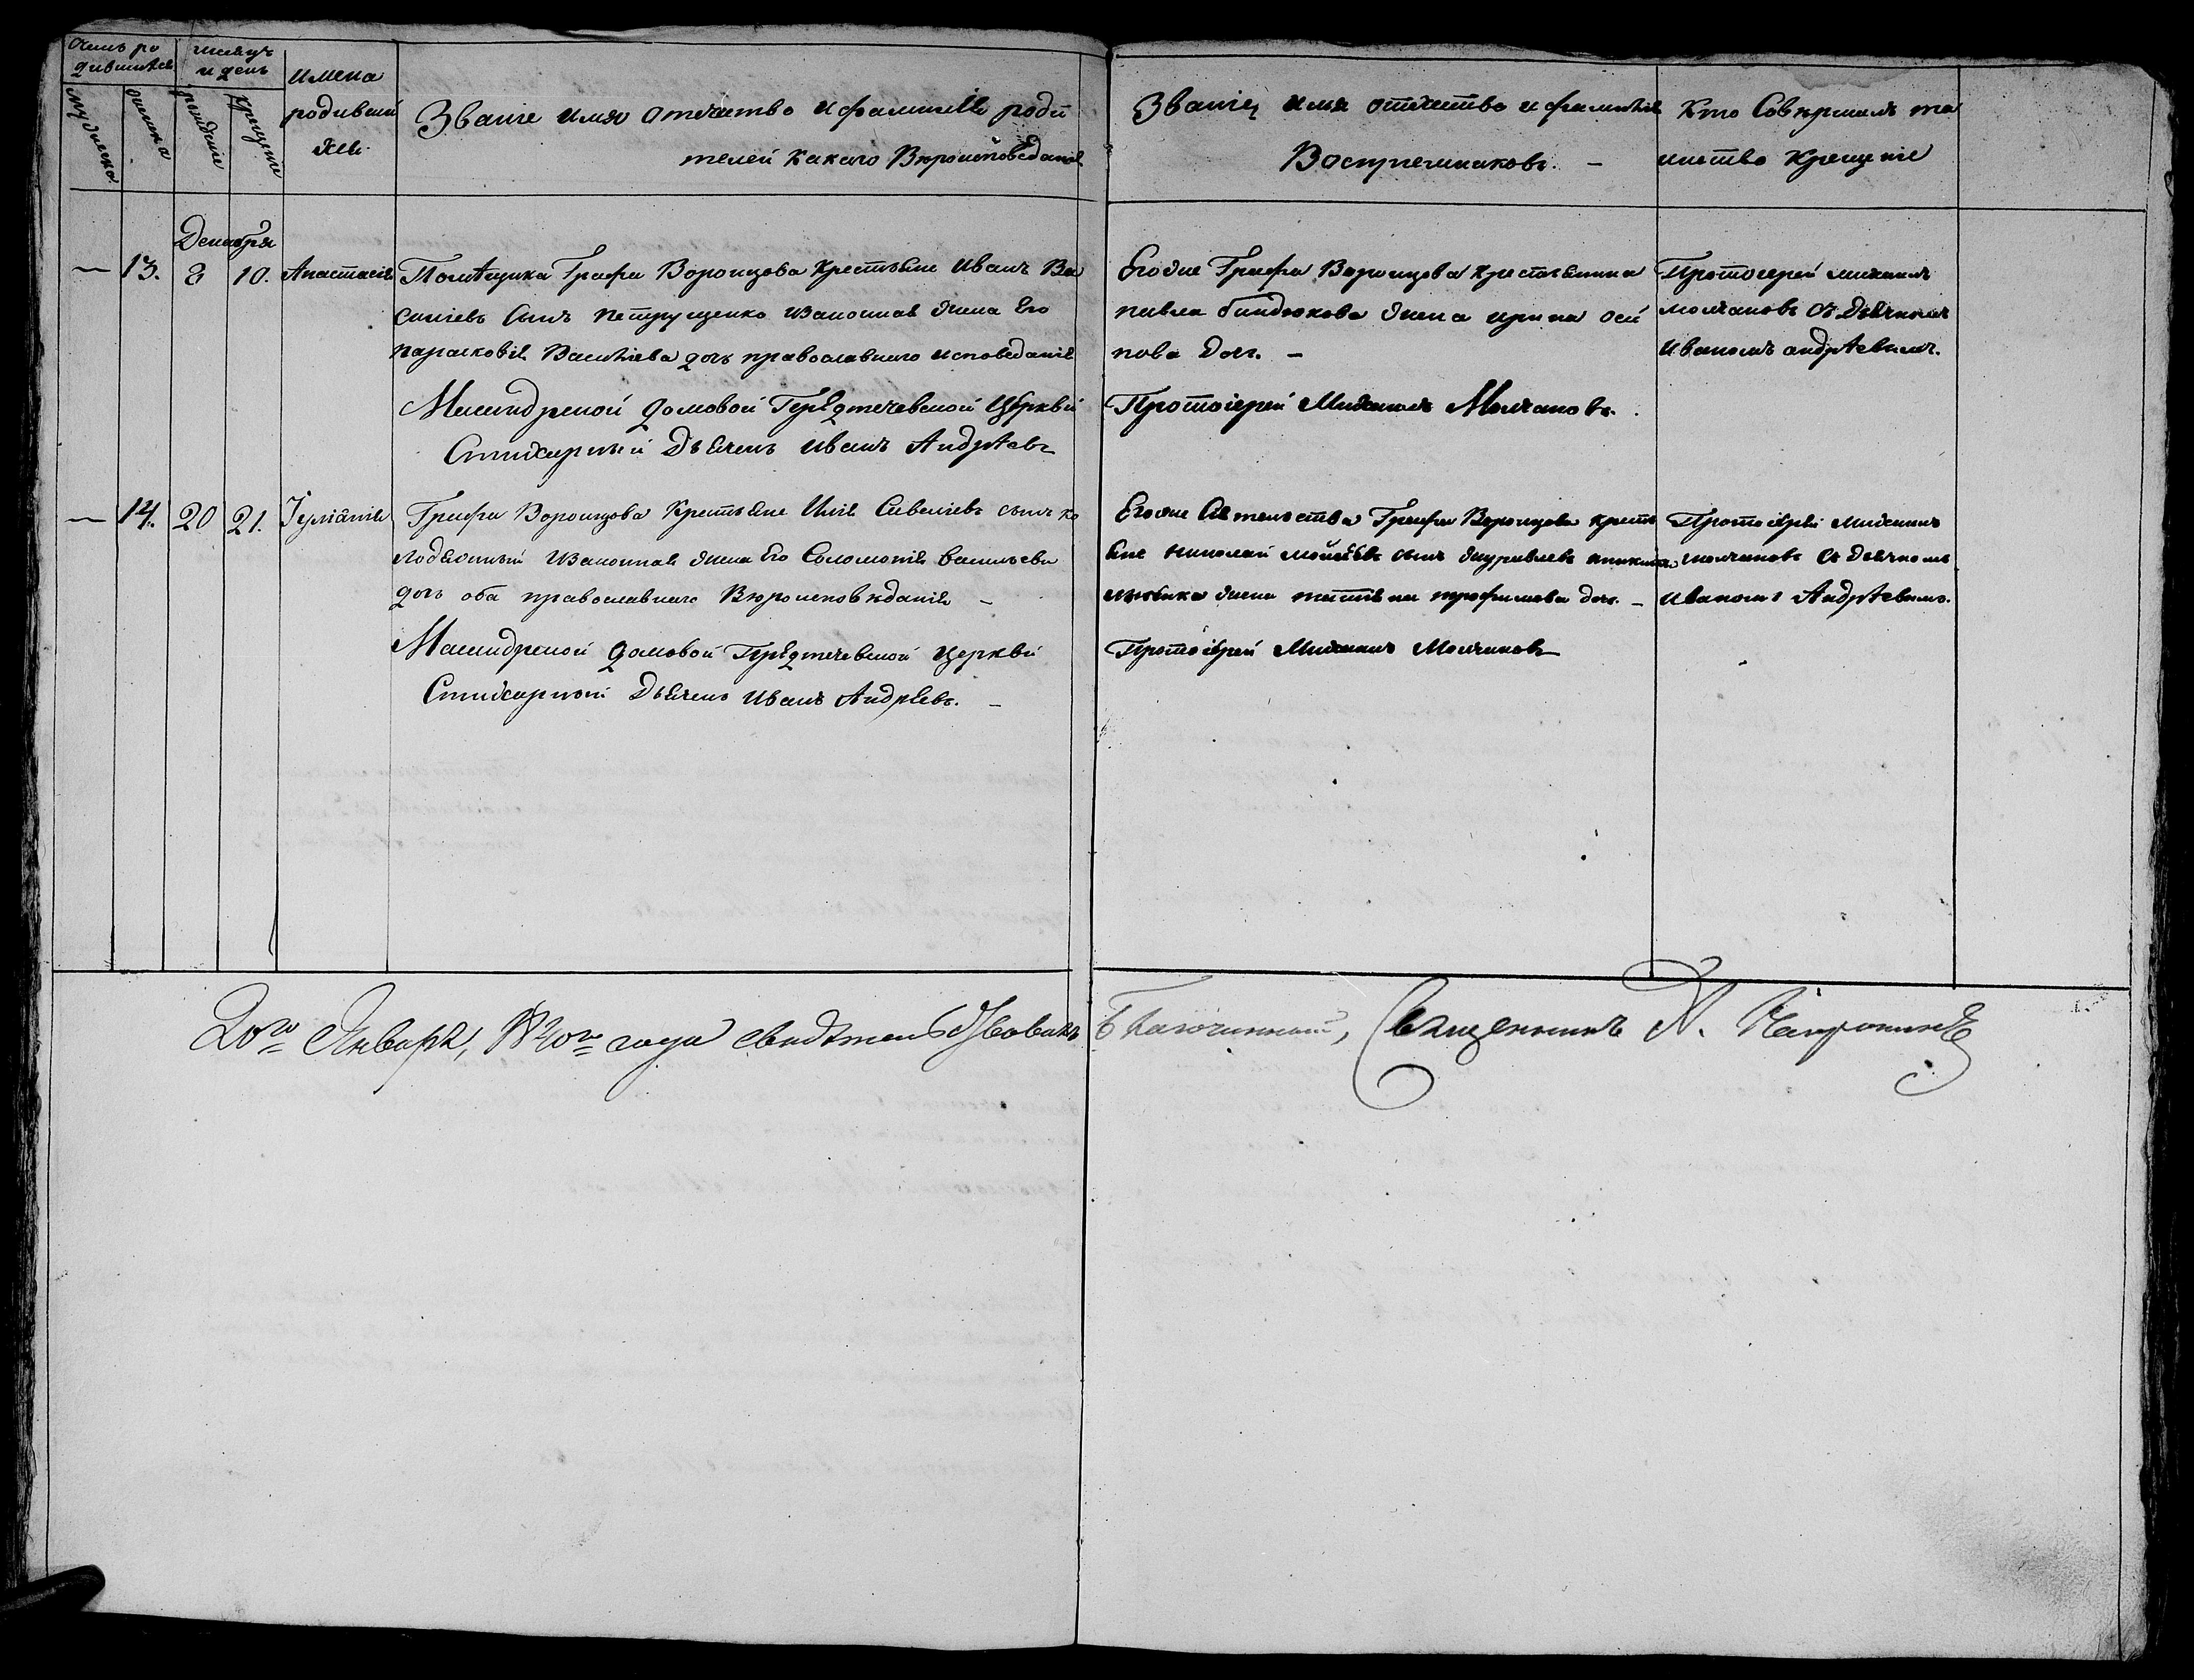 Счетъ ро
дившихся
мужеска
женска
мѣсяцъ
и день
рождение
крещение
имена
родивший
хся
Званіе имя отечество и фамилія роди
телей какаго Вѣроисповеданія
Званіе имя отечество и фамилія
Восприемниковъ. —
Кто Совершалъ та
инство крещение
Декабря
— 13. 8 10. Анастасія
Помѣщика Графа Воронцова крестьяне Иванъ Ва
силіевъ Сынъ Петрущенко Изаконная жена Его
Парасковія Василіева дочь православнаго исповеданія
Масандрской домовой Предтечевской Церкви
Стихарный Дьячекъ Иванъ Андрѣевъ
Егоже Графа Воронцова крестьянина
павла жена ирина оси
пова Дочь. —
Протоіерей Михаилъ Молчановъ.
Протоіерей михаилъ
молчановъ съ Дьячкомъ
Иваномъ андрѣевымъ.
— 14. 20 21. Іуліанія
Графа Воронцова Крестьяне Илія Савеліевъ сынъ ко
лодяжный Изаконная жена Его Соломонія васильева
дочь оба православнаго Вѣроисповѣданія —
Масандрской домовой Предтечевской церкви
Стихарный Дьячекъ Иванъ Андрѣевъ. —
Егоже Сіятельства Графа Воронцова крестя
яне николай сынъ журавлевъ
жена татіяна трофимова доч. —
Протоіерей Михаилъ Молчановъ
Протоіерей михаилъ
молчановъ съ дьячкомъ
Иваномъ Андрѣевымъ.
20го Января, 1840го года свидѣтельствовалъ
Благочинный, Священникъ